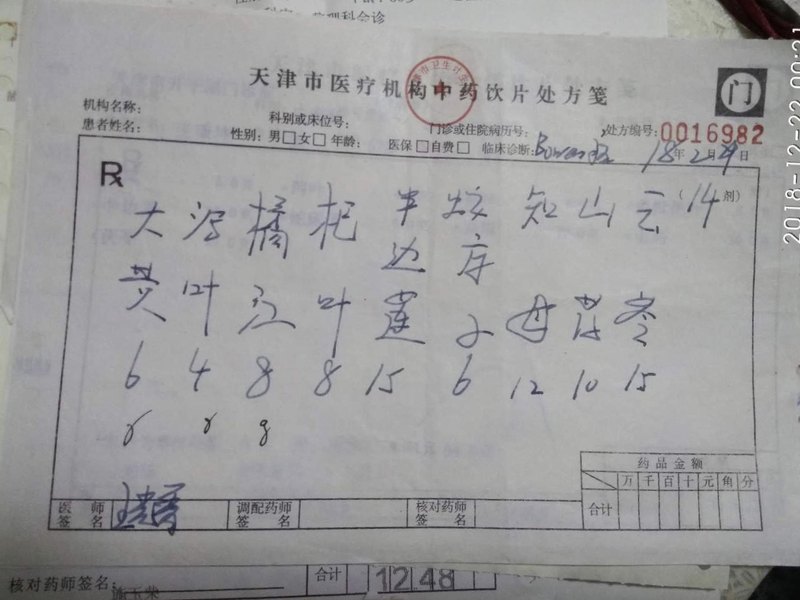 科会诊
天津市医疗机构中药饮片处方笺
门
机构名称:
科别或床位号:
门诊或住院病历号:
处方编号:0016982
患者姓名:
性别: 男□女□ 年龄:
医保□自费□ 临床诊断:
18年2月 日
R
(14剂)
大黄 6
叶 4
橘红 8
杷叶 8
半边莲 15
子 6
知母 12
山 10
云苓 15
药品金额
万千百十元角分
合计
医师签名
调配药师签名
核对药师签名
核对药师签名:
合计
1248
2018-12-22 00:21